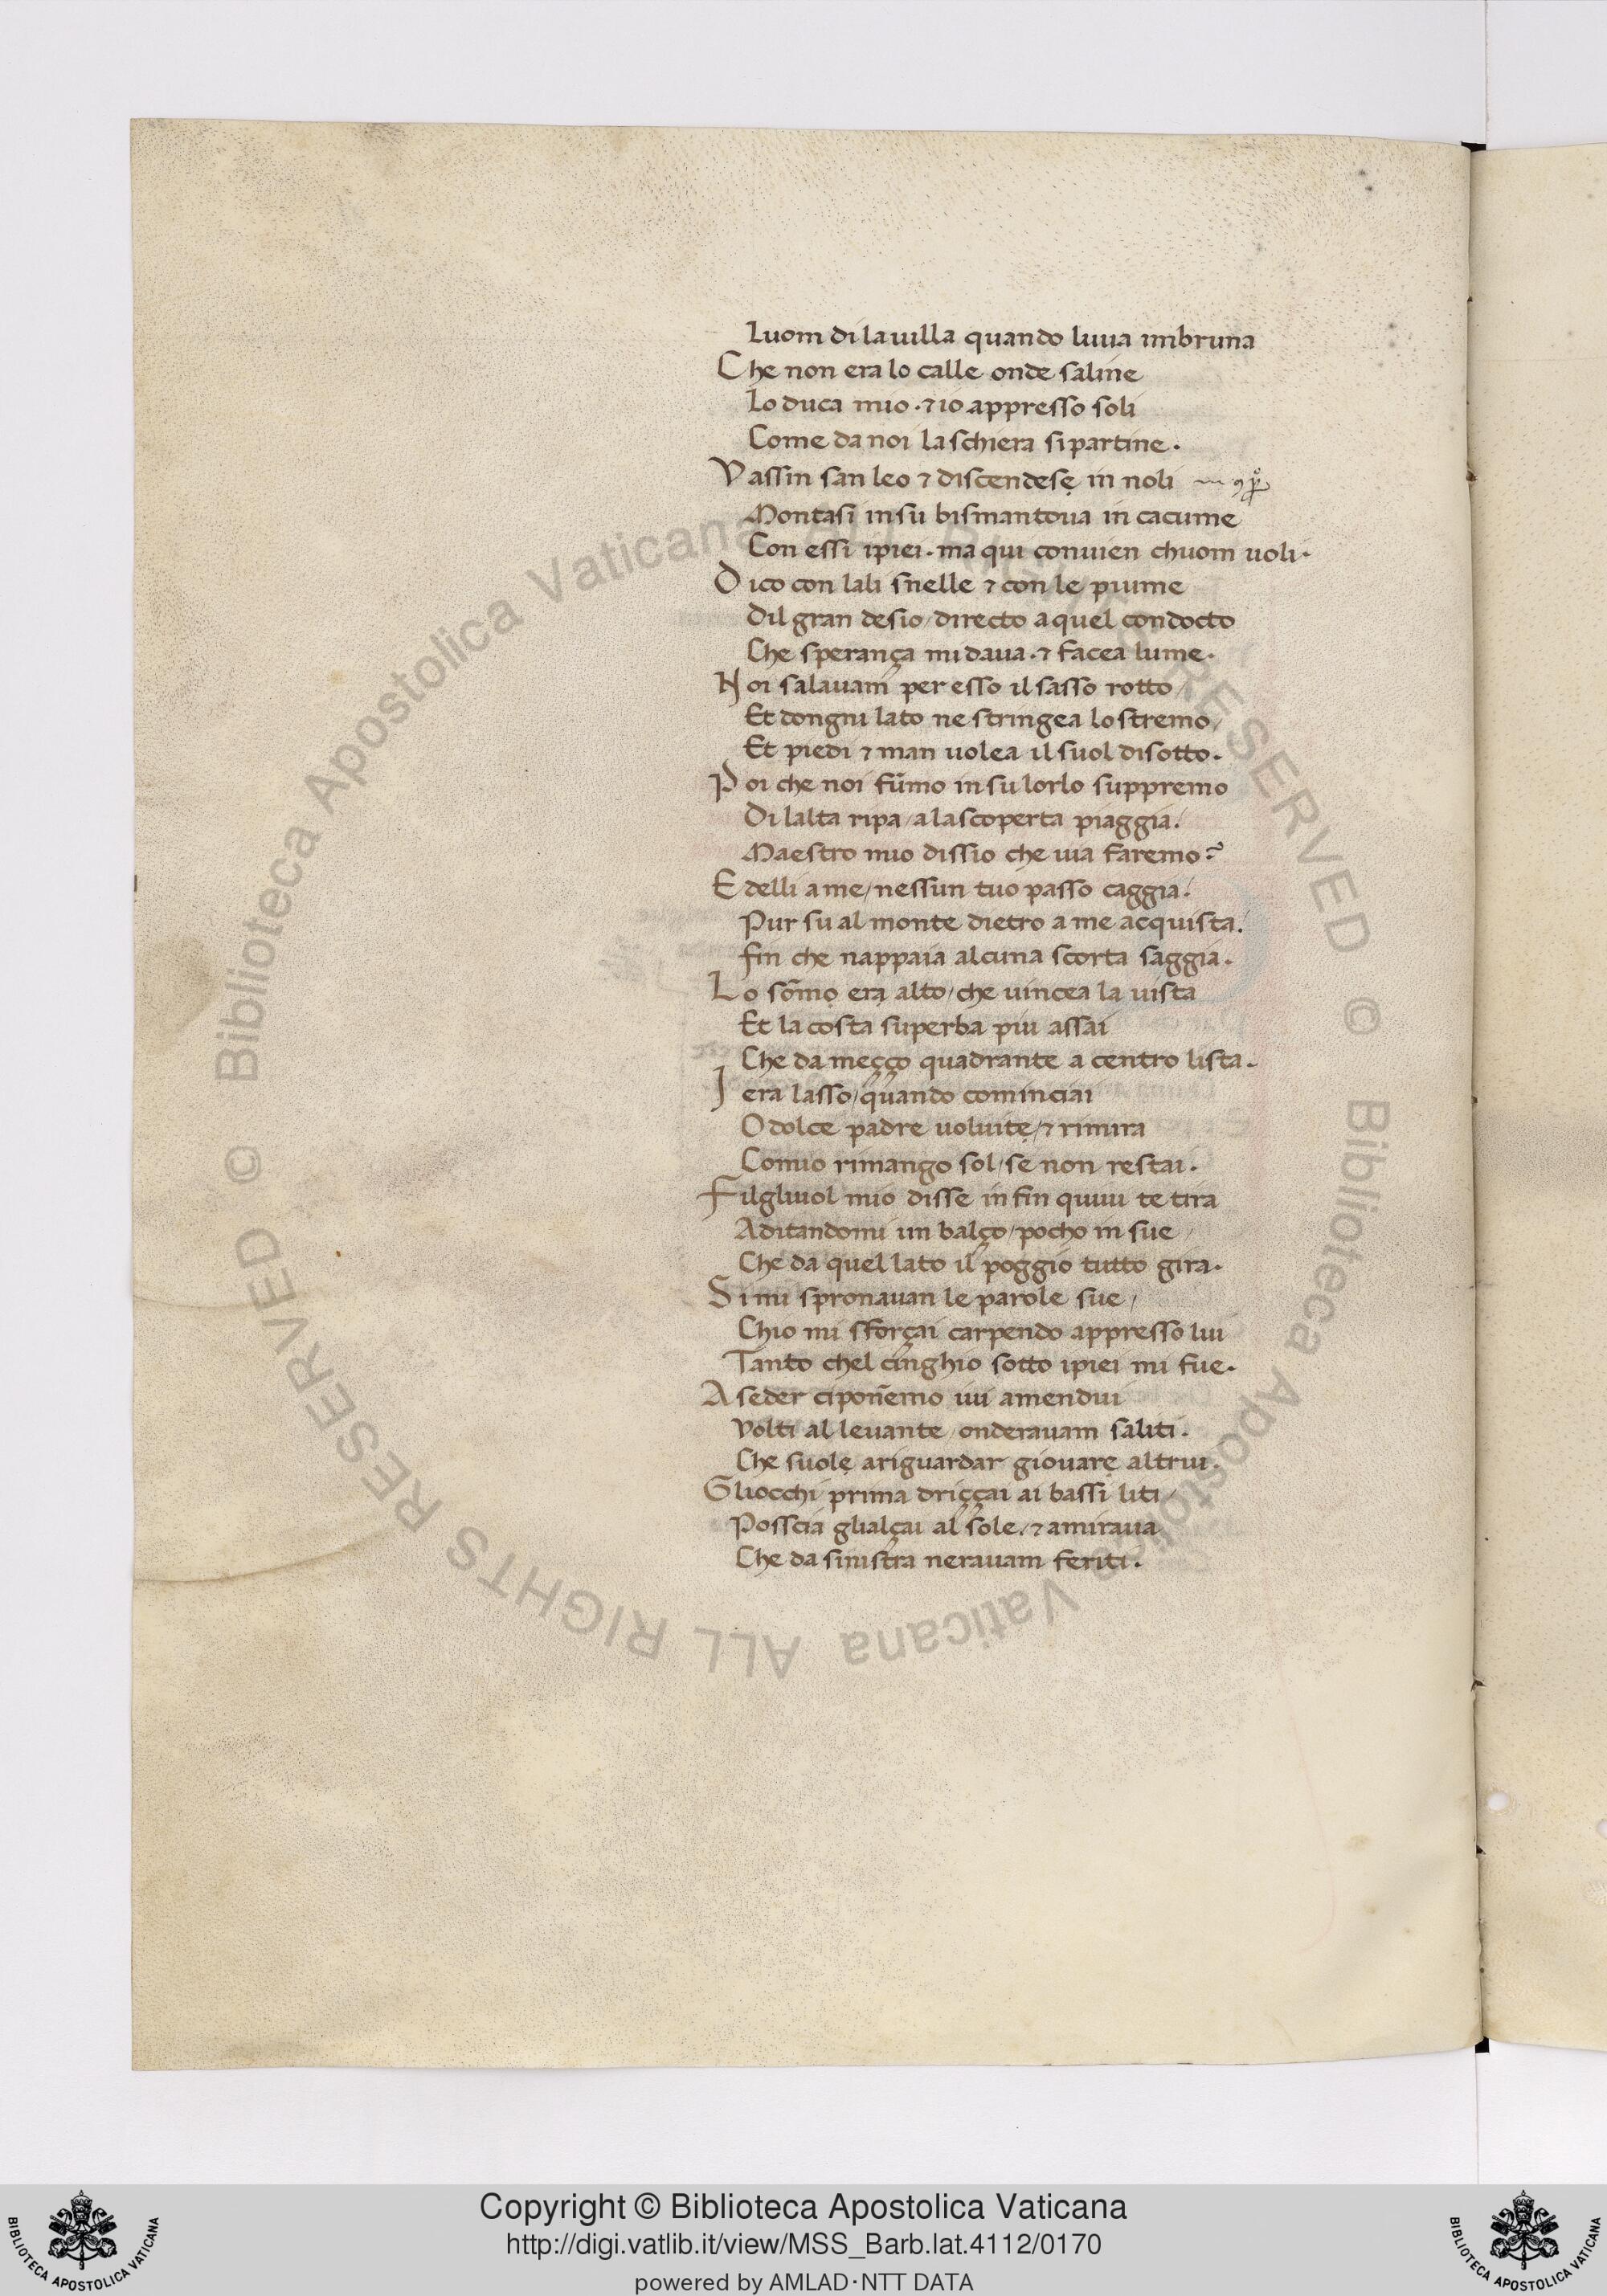 Luom di la uilla quando luua imbruna
Che non era lo calle onde saline
Lo duca mio · ⁊ io appresso soli
Come da noi la schiera si partine ·
Vassin san leo ⁊ discendesẹ in noli
Montasi in su bismantoua in cacume
Con essi ipiei · ma qui conuien chuom uoli ·
Dico con lali snelle ⁊ con le piume
Dil gran desio / directo a quel condocto
Che sperança mi daua · ⁊ facea lume ·
Noi salauam̄ per esso il sasso rotto /
Et dongni lato ne stringea lo stremo /
Et piedi ⁊ man uolea il suol disotto ·
Poi che noi fūmo in su lorlo suppremo
Di lalta ripa / a la scoperta piaggia ·
Maestro mio dissio che uia faremo ?
E delli a me / nessun tuo passo caggia ·
Pur su al monte dietro a me acquista ·
fin che nappaia alcuna scorta saggia ·
Lo som̄ọ erạ alto / che uincea la uista
Et la costa superba piu assai
Che da meçço quadrante a centro lista ·
I era lasso / quando cominciai
O dolce padre uoluitẹ / ⁊ rimira
Comio rimango sol / se non restai ·
Filgliuol mio disse in fin quiui te tira
Aditandomi un balço / pocho in sue /
Che da quel lato il poggio tutto gira ·
Si mi spronauan le parole sue /
Chio mi sforçai carpendo appresso lui
Tanto chel cinghio sotto ipiei mi fue ·
A seder ci pon̄emo iui amendui
Volti al leuante / onderauam saliti ·
Che suolẹ a riguardar giouarẹ altrui ·
Gliocchi prima driççai ai bassi liti /
Posscia glialçai al sole · ⁊ amiraua
Che da sinistra nerauam feriti ·
Copyright © Biblioteca Apostolica Vaticana
http://digi.vatlib.it/view/MSS_Barb.lat.4112/0170
powered by AMLAD·NTT DATA
BIBLIOTECA APOSTOLICA VATICANA
BIBLIOTECA APOSTOLICA VATICANA
© Biblioteca Apostolica Vaticana ALL RIGHTS RESERVED © Biblioteca Apostolica Vaticana ALL RIGHTS RESERVED